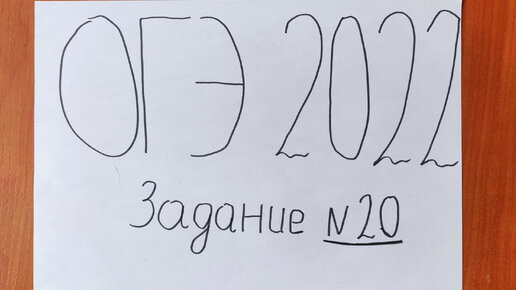 ОГЭ 2022
Задание №20